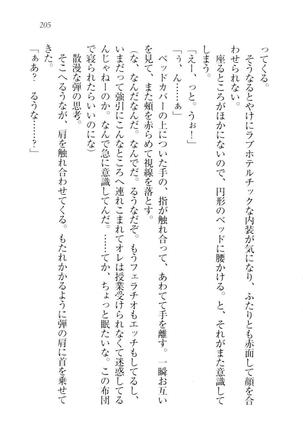 205
ってくる。
　そうなるとやけにラブホテルチックな内装が気になり、ふたりとも赤面して顔を合
わせられない。
　座るところがほかにないので、円形のベッドに腰かける。と、それがまた意識して
しまう。
「えー、っと。うぉ！」
「ぅ、ん……ぁ」
　ベッドカバーの上についた手の、指が触れ合って、あわてて手を離す。一瞬お互い
を見て、また頬を赤らめて視線を落とす。
（な、なんだなんだ。なんでだ。るうなだぞ。もうフェラチオもエッチもしてるし、
いまだって強引にこんなところへ連れこまれてオレは授業受けられなくて迷惑してる
んじゃねーのか。なんで急に意識してんだ。……てか、ちょっと眠たいな。この布団
で寝られたらいいのにな）
　散漫な弾の思考。
　そこへるうなが、肩を触れ合わせてくる。もたれかかるように弾の肩に首を乗せて
きた。
「ぁあ？　るうな……？」